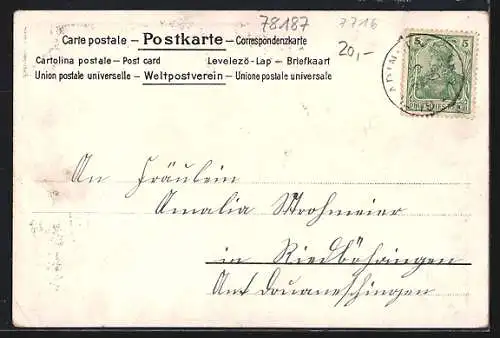 78187 7716
Carte postale – Postkarte – Correspondenzkarte
20,-
Cartolina postale – Post card Levelezö-Lap – Briefkaart
Union postale universelle – Weltpostverein – Unione postale universale
5 5
An Fräulein
Amalia Strohmeier
in Riedböhringen
Amt Douaneschingen